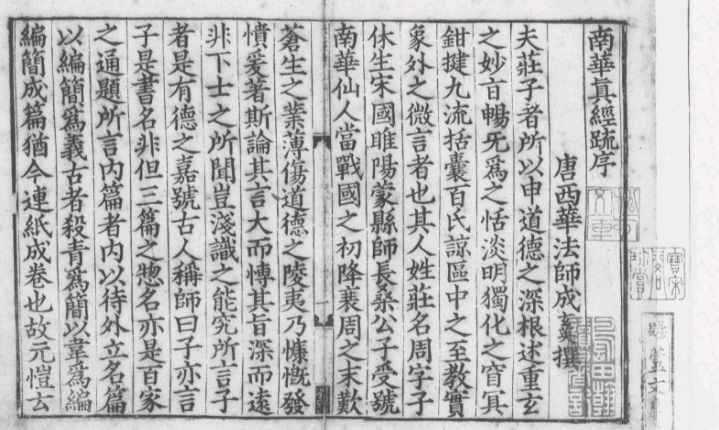 南華真經疏序
唐西華法師成玄英撰
夫莊子者所以申道德之深根述重玄
之妙㫖暢无爲之恬淡明獨化之窅冥
鉗揵九流括囊百氏諒區中之至教實
象外之微言者也其人姓莊名周字子
休生宋國睢陽蒙縣師長桑公子受號
南華仙人當戰國之初降衰周之末歎
蒼生之業薄傷道德之陵夷乃慷慨發
憤爰著斯論其言大而慱其旨深而遠
非下士之所聞豈淺識之能究所言子
者是有德之嘉號古人稱師曰子亦言
子是書名非但三篇之惣名亦是百家
之通題所言内篇者内以待外立名篇
以編簡爲義古者殺青爲簡以韋爲編
編簡成篇猶今連紙成卷也故元愷云